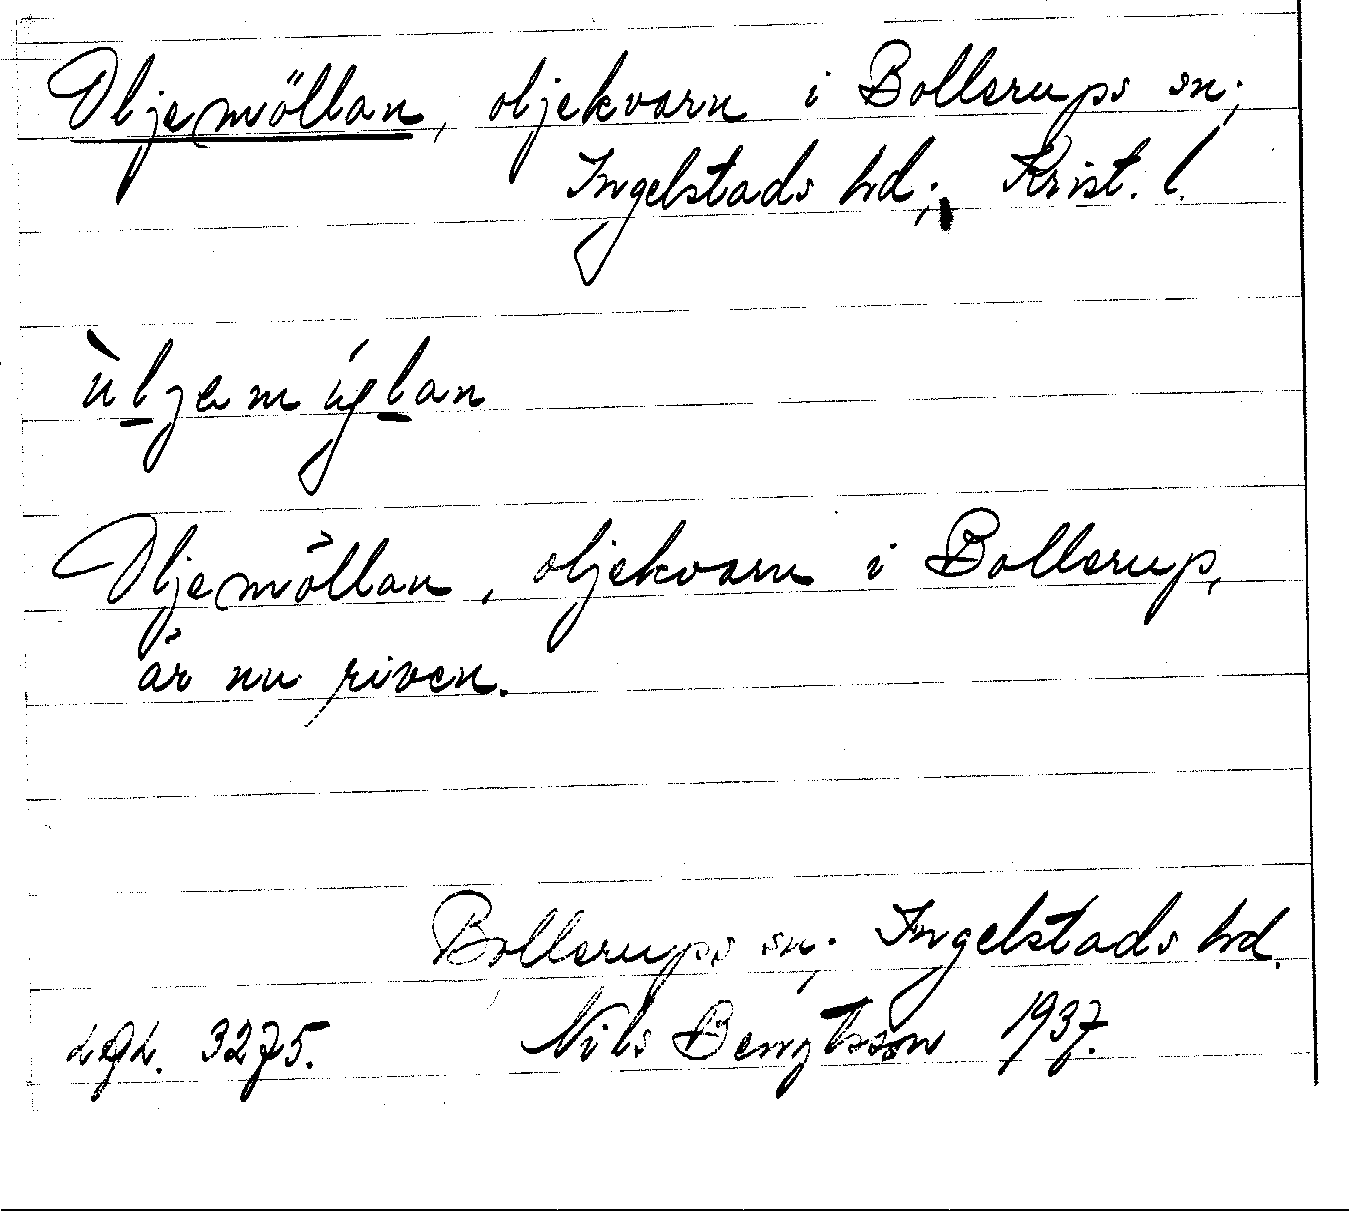 Oljemöllan, oljekvarn i Bollerups sn;
Ingelstads hd; Krist. l.
Oljemöllan, oljekvarn i Bollerup,
är nu riven.
Bollerups sn; Ingelstads hd.
3275. Nils Bengtsson 1937.